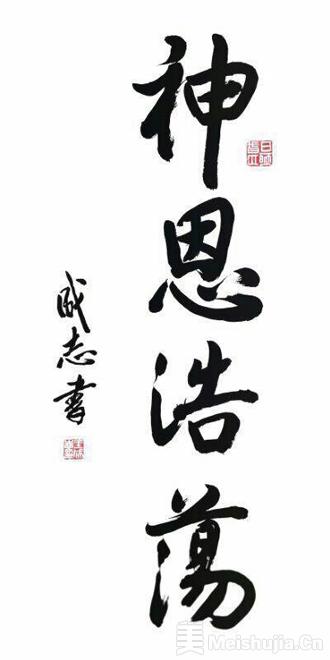 神恩浩荡
成志書
美 Meishujia.Cn